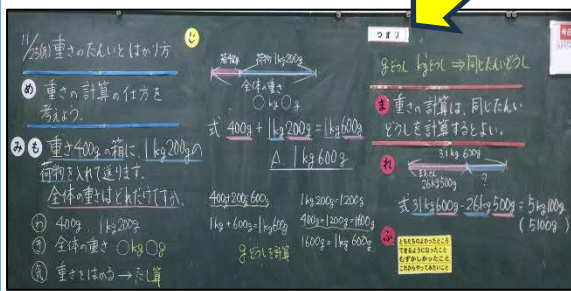 11/25(月)重さのたんいとはかり方
め 重さの計算の仕方を
考えよう.
み も 重さ400gの箱に、1kg200gの
荷物を入れて送ります.
全体の重さはどれだけですか.
わ 400g. 1kg200g
き 全体の重さ ○kg○g
気 重さをはかる→たし算
じ
箱400g 荷物1kg200g
全体の重さ
○kg○g
式 400g+1kg200g=1kg600g
A. 1kg600g
400+200=600
1kg+600g=1kg600g
gどうしを計算
1kg200g=1200g
400g+1200g=1600g
1600g=1kg600g
つまり
gどうし kgどうし ⇒同じたんいどうし
ま 重さの計算は、同じたんい
どうしを計算するとよい.
れ
31kg600g
26kg500g
?
式31kg600g-26kg500g=5kg100g
(5100g)
ふ
ともだちのよかったところ
できるようになったこと
むずかしかったこと
これからやってみたいこと
今日